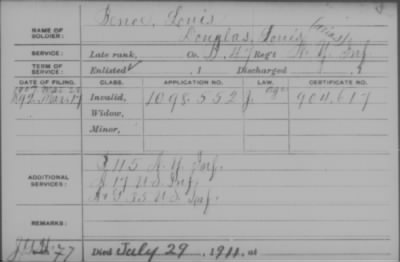 Benoe, Louis
NAME OF SOLDIER: Douglas, Louis (Alias)
SERVICE: Late rank, Co. D. 47 Reg't N. Y. Inf.
TERM OF SERVICE: Enlisted , 1 Discharged , 1
DATE OF FILING. CLASS. APPLICATION NO. LAW. CERTIFICATE NO.
1892 Mar 17 Invalid, 1098.552 J. 904.617
Widow,
Minor,
ADDITIONAL SERVICES:
115 N. Y. Inf.
17 U.S. Inf.
35 U.S. Inf.
REMARKS:
Died July 29, 1911, at